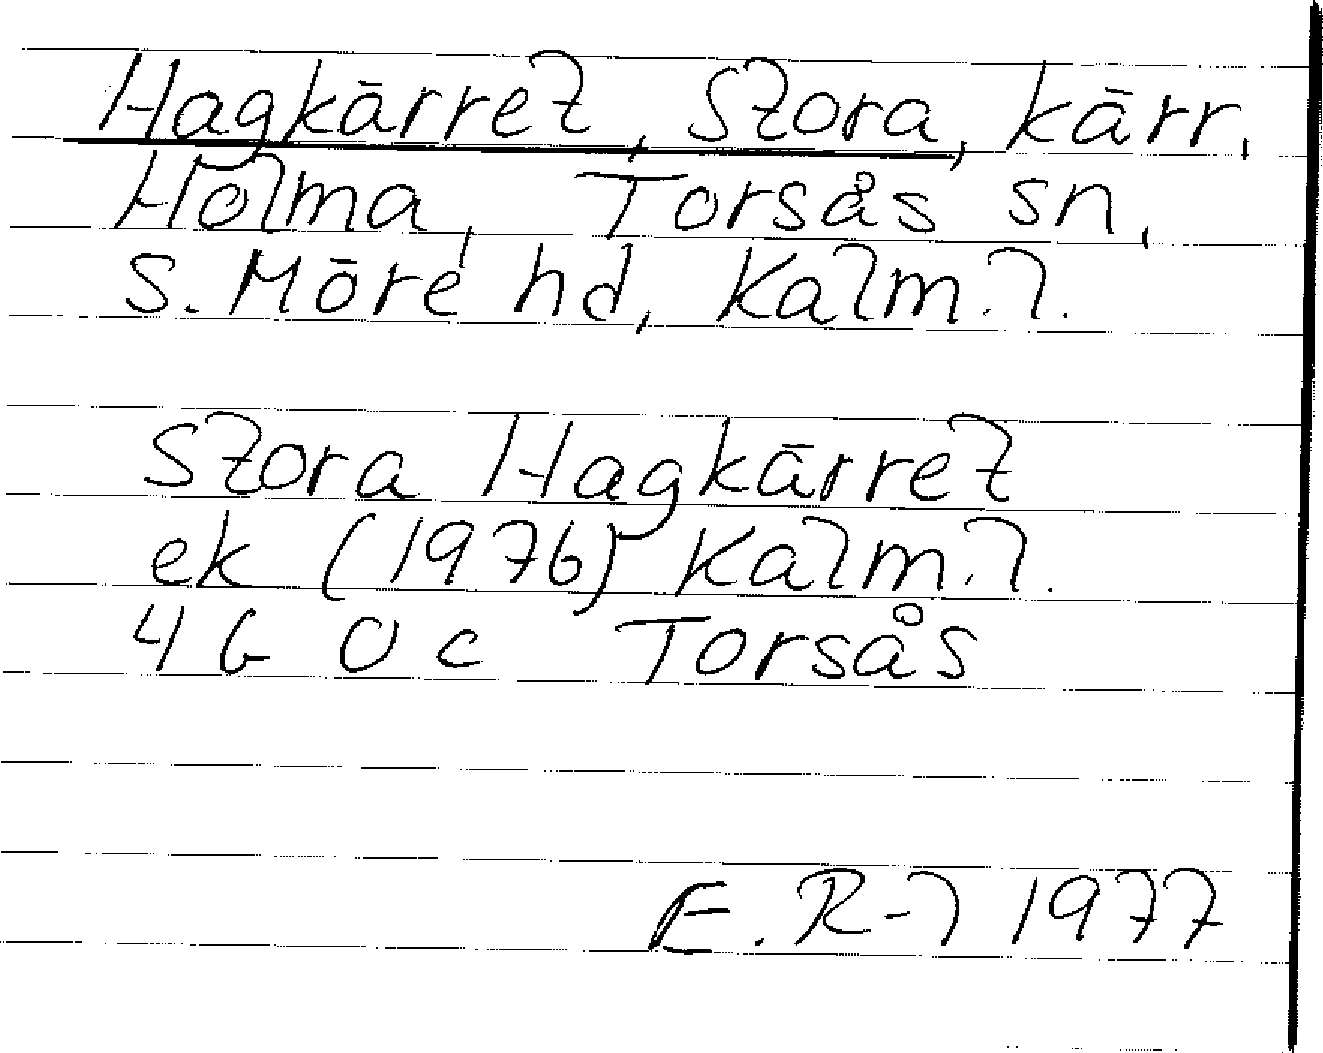 Hagkärret, Stora, kärr,
Holma, Torsås sn,
S. Möre hd, Kalm. l.
Stora Hagkärret
ek (1976) Kalm. l.
4G 0c Torsås
E. R-l 1977